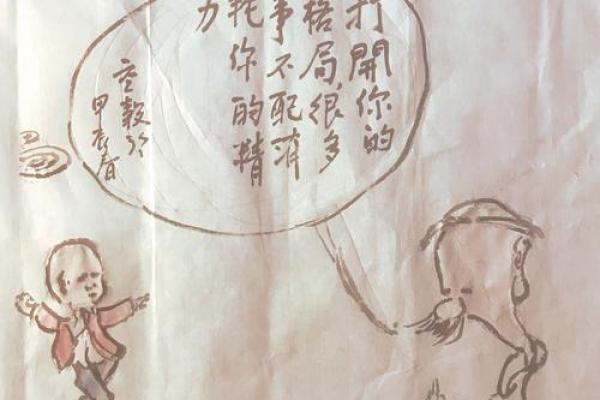 打開你的
格局很多
事不配消
耗你的精
力
空穀於
甲辰春